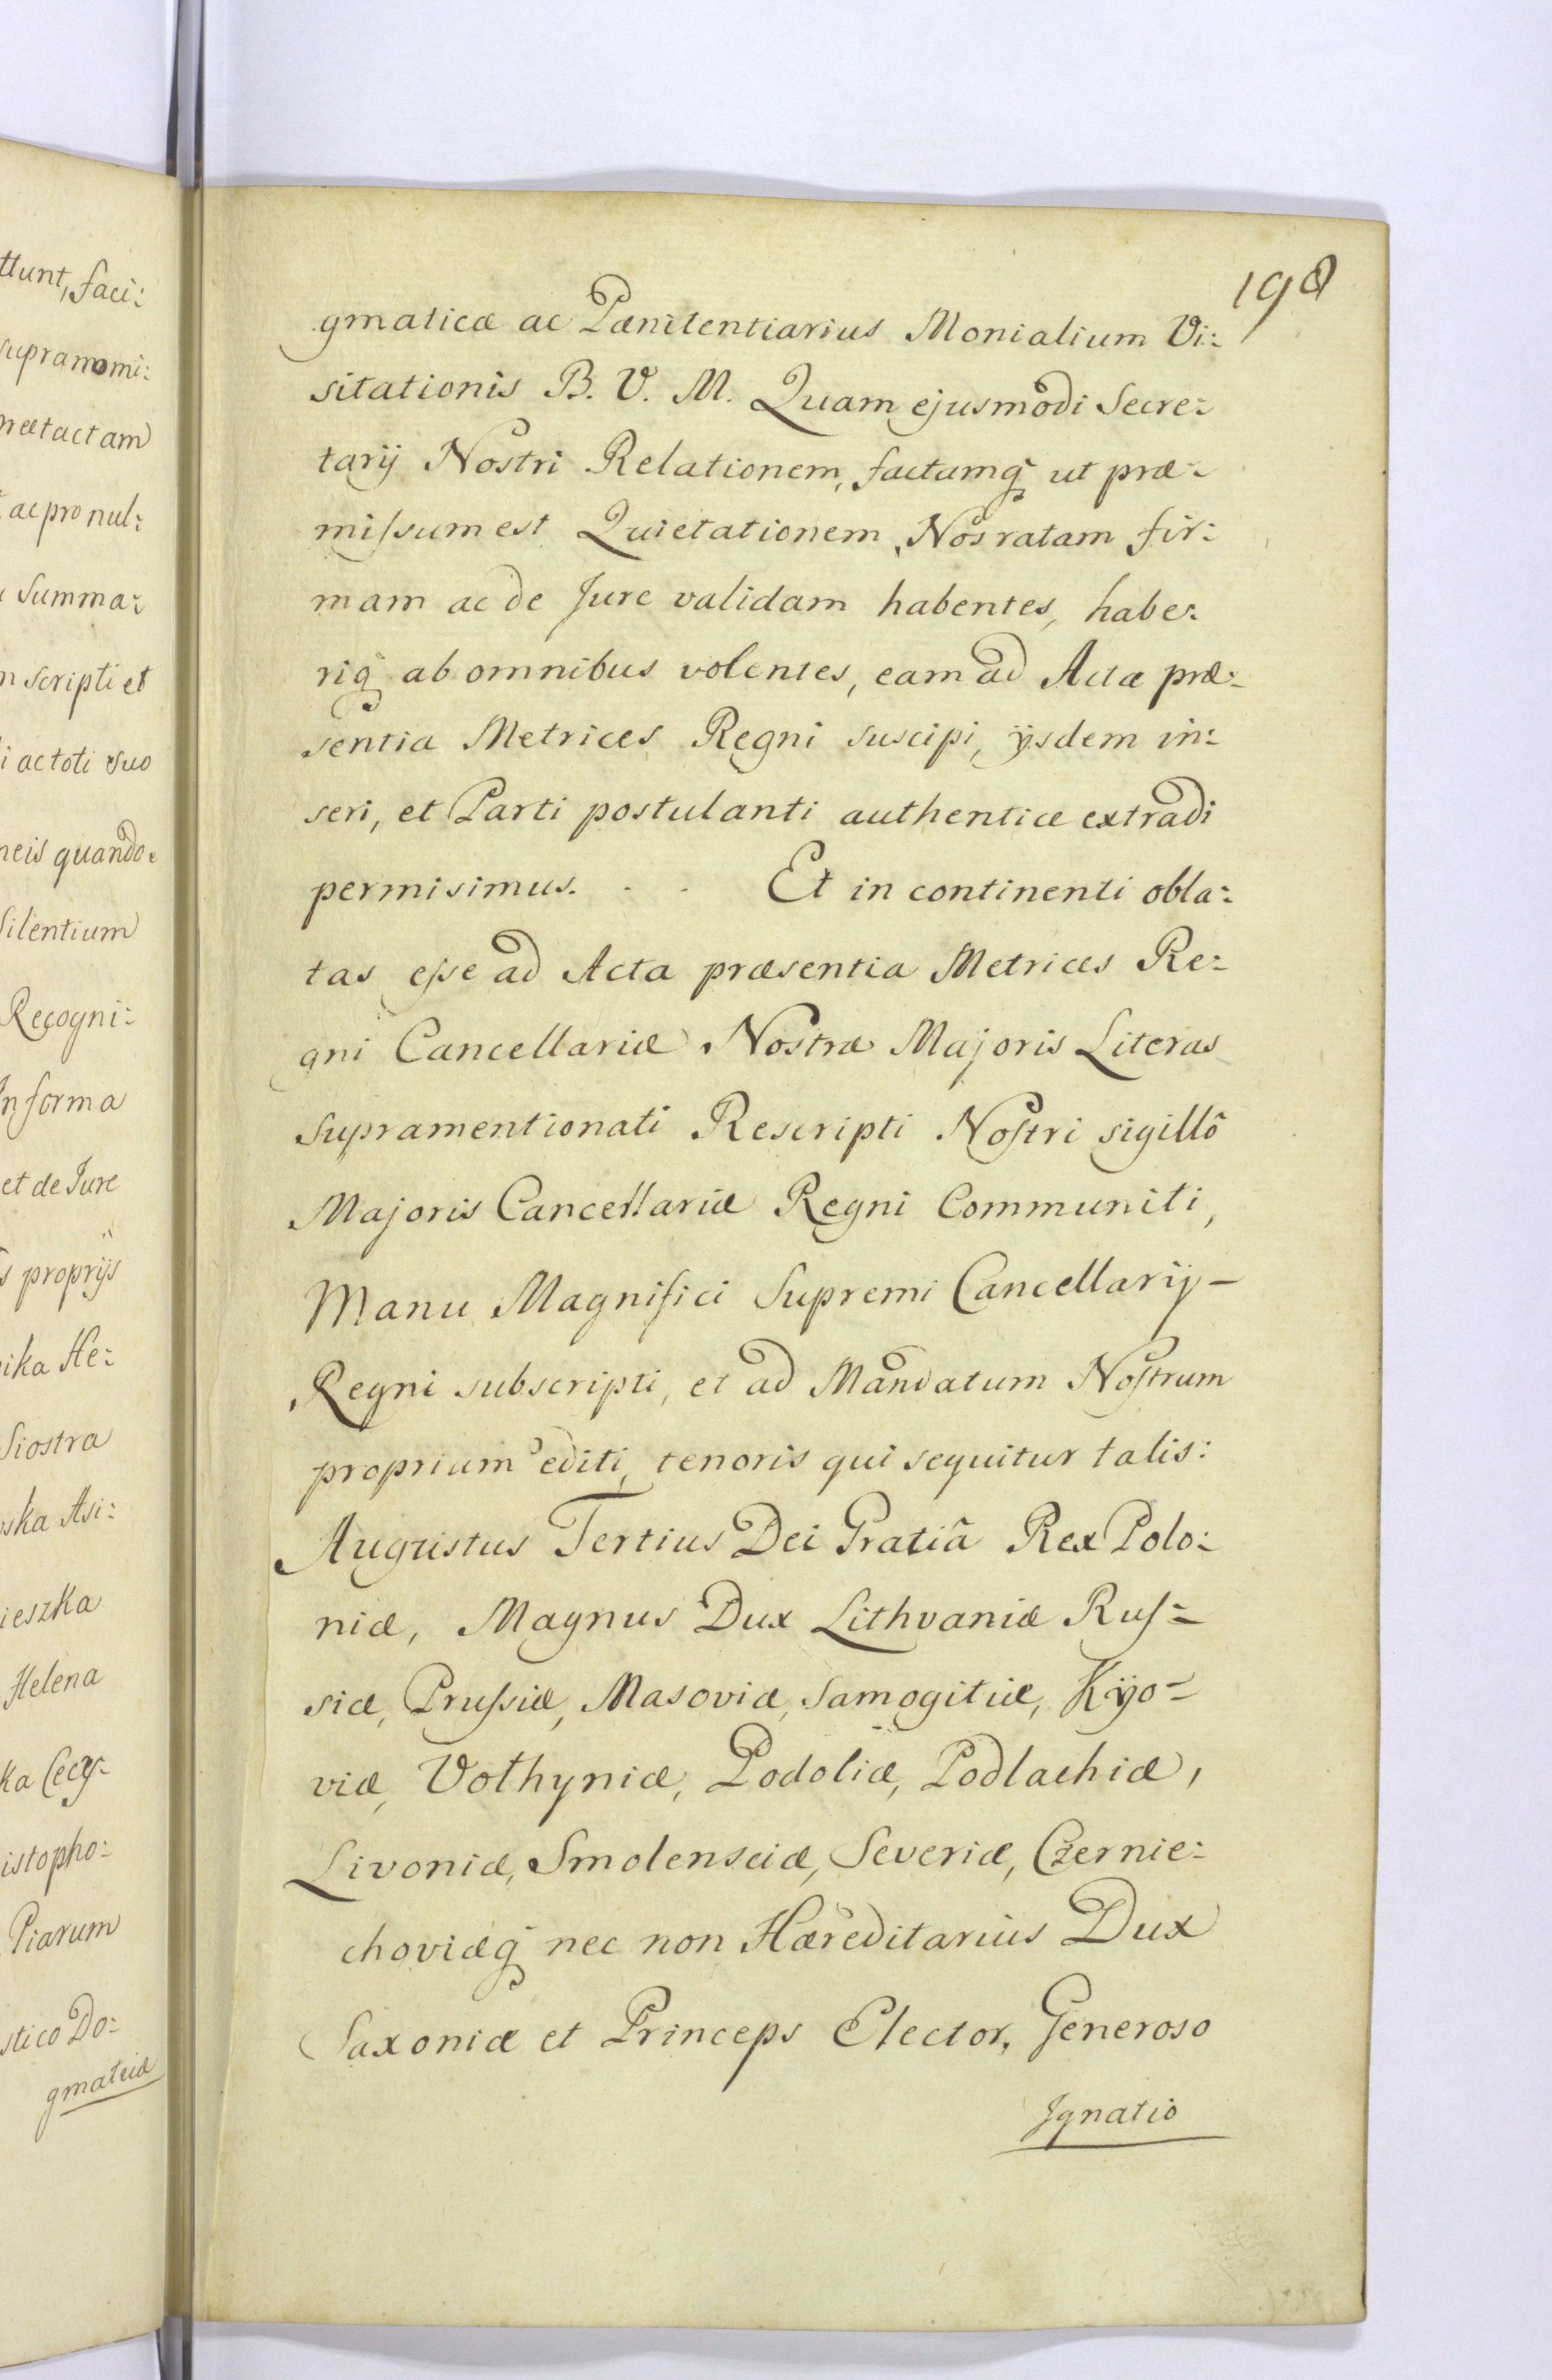 ttunt, faci:
supranomi:
ac pro nul:
Summa:
scripti et
ac toti suo
quando
Silentium
Recogni:
forma
et de Jure
proprijs
He:
Siostra
Asi:
Helena
Cecy:
Piarum
Do:
gmaticæ
198
gmaticæ ac Pænitentiarius Monialium Vi:
sitationis B. V. M. Quam ejusmodi Secre:
tarij Nostri Relationem, factamq̃ ut præ:
miſsum est Quietationem, Nos ratam fir:
mam ac de Jure validam habentes, habe:
riq̃ ab omnibus volentes, eam ad Acta præ:
sentia Metrices Regni suscipi, ijsdem in:
seri, et Parti postulanti authenticæ extradi
permisimus. - - Et in continenti obla:
tas eſse ad Acta præsentia Metrices Re:
gni Cancellariæ Nostræ Majoris Literas
supramentionati Rescripti Noſtri sigillô
Majoris Cancellariæ Regni Communiti,
Manu Magnifici Supremi Cancellarij –
Regni subscripti, et ad Mandatum Noſtrum
proprium editi, tenoris qui sequitur talis:
Augustus Tertius Dei Gratiâ Rex Polo:
niæ, Magnus Dux Lithvaniæ Ruſ=
siæ, Pruſsiæ, Masoviæ, Samogitiæ, Kijo=
viæ, Volhyniæ, Podoliæ, Podlachiæ,
Livoniæ, Smolensciæ, Severiæ, Czernie:
choviæq̃ nec non Hæreditarius Dux
Saxoniæ et Princeps Elector, Generoso
Ignatio